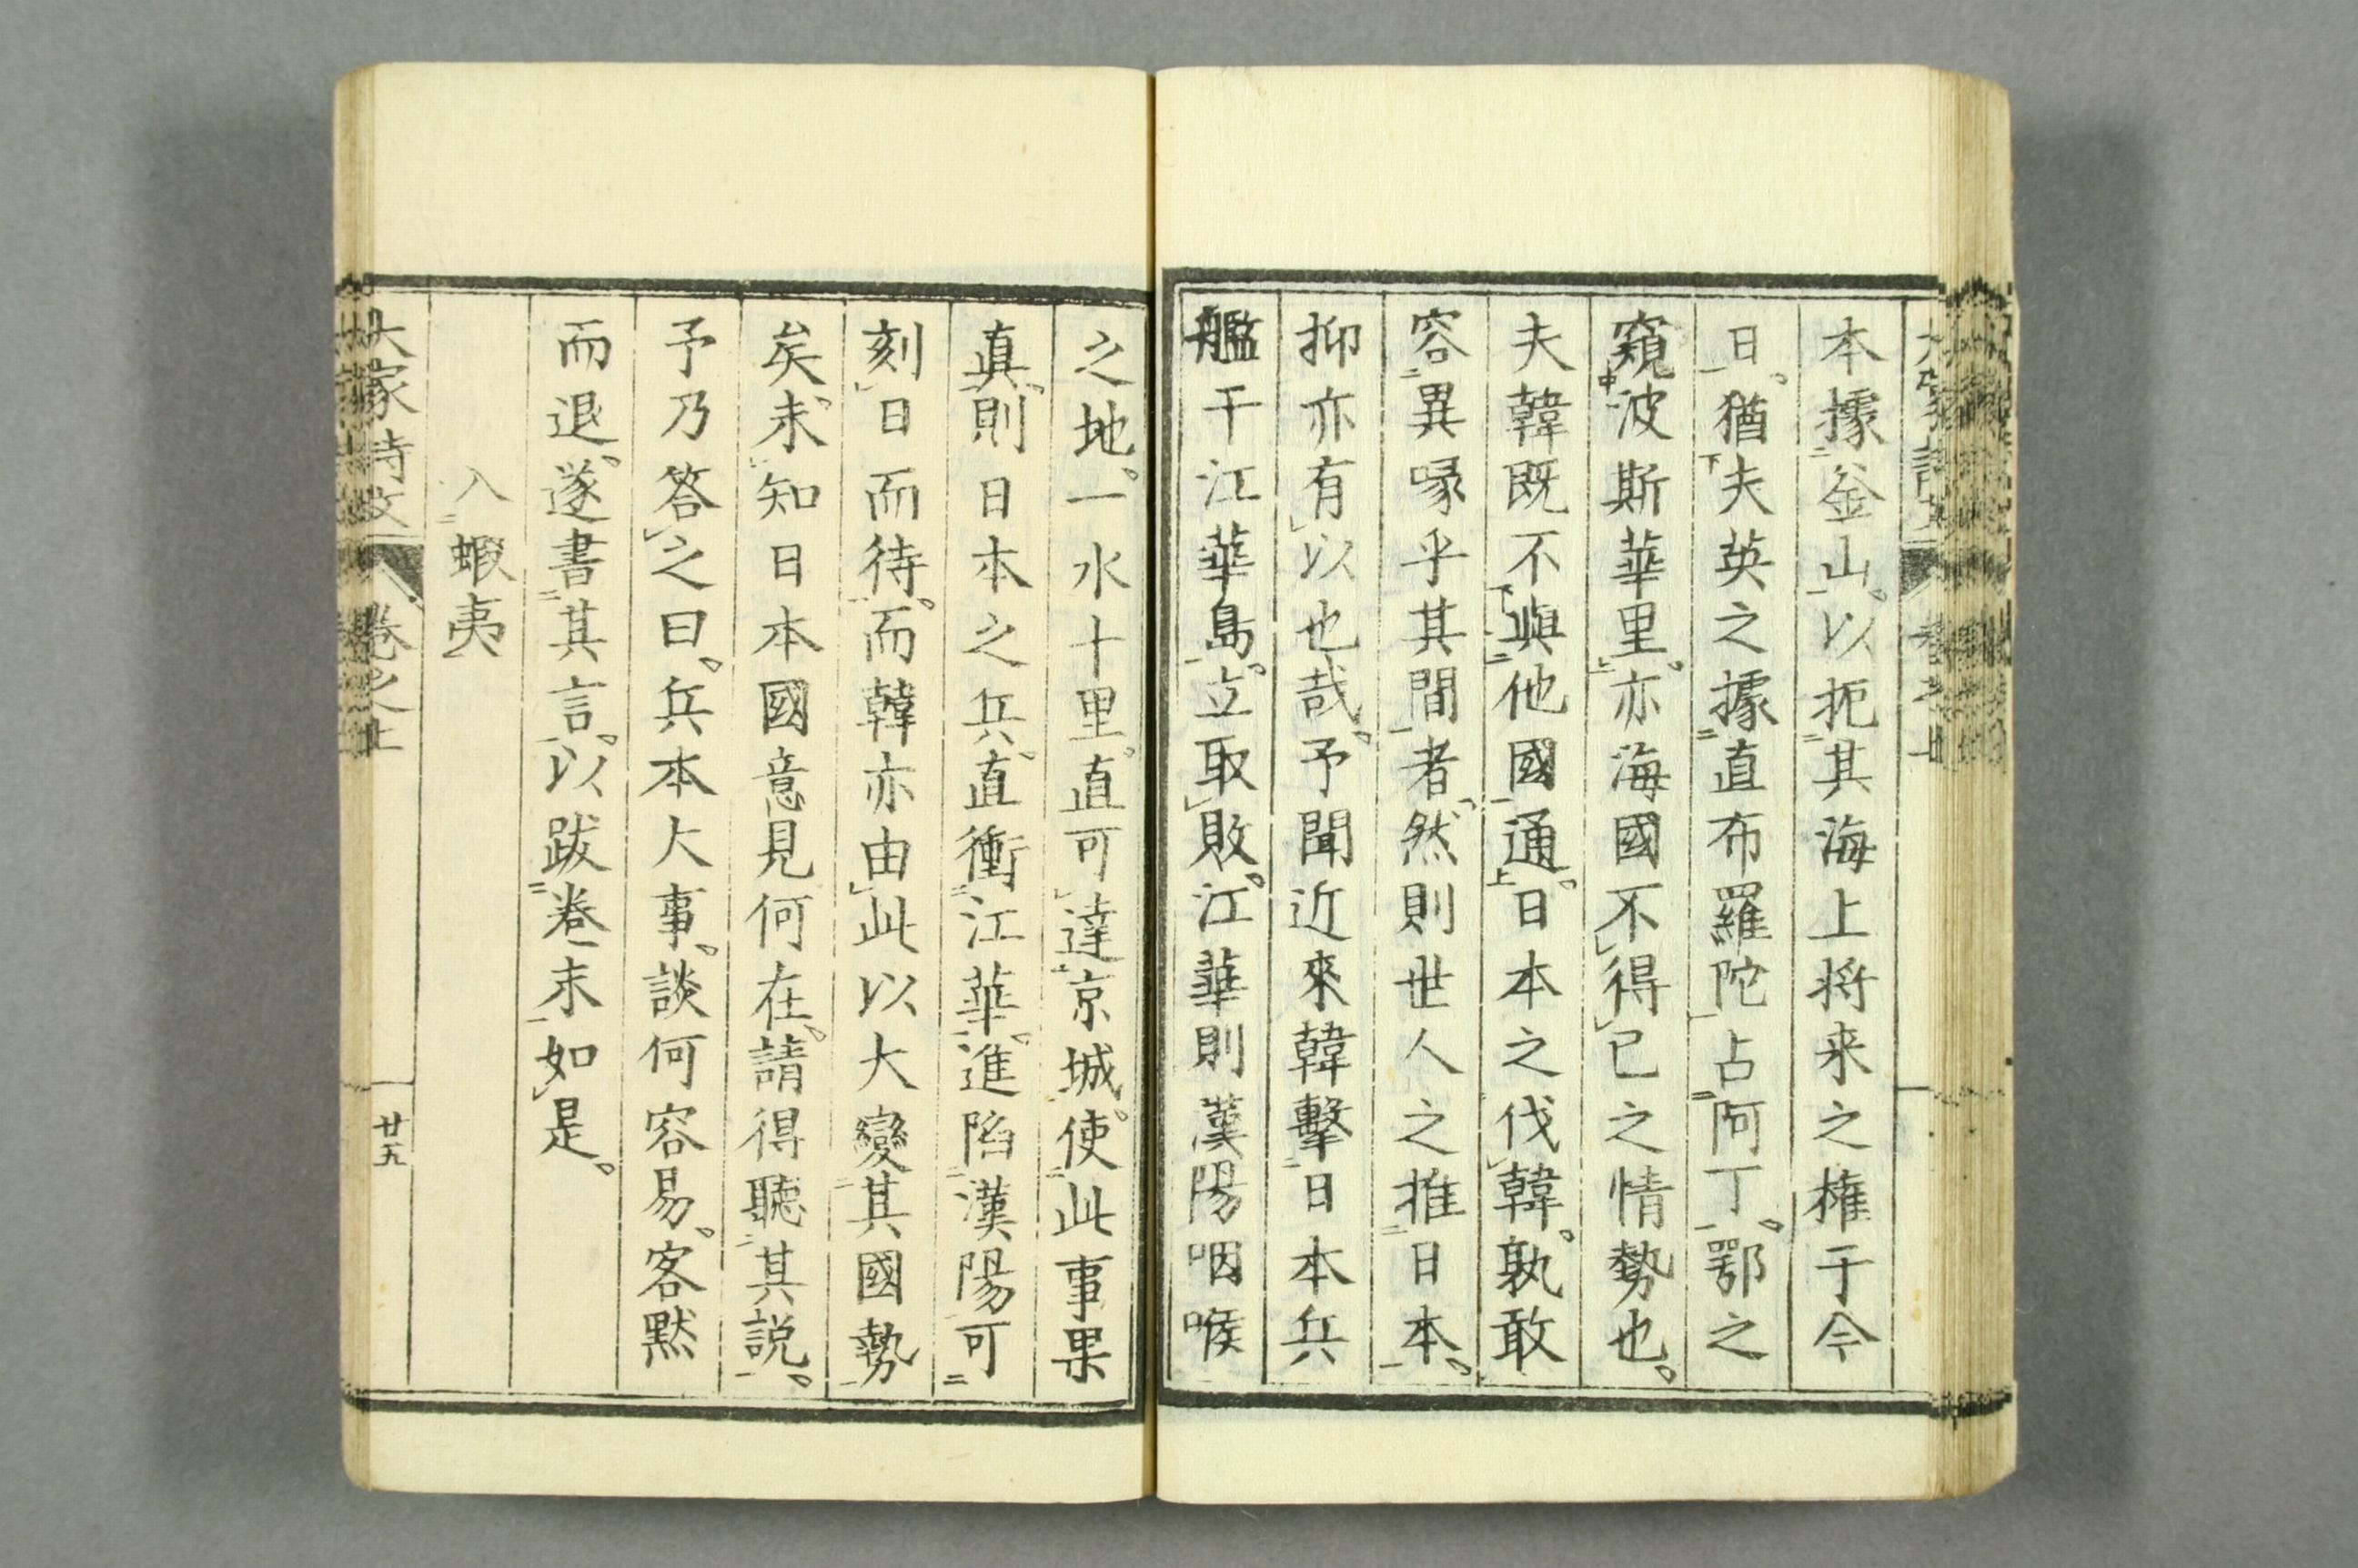 本據釜山。以扼其海上将来之権于今
日。猶夫英之據直布羅陀占阿丁。鄂之
窺波斯華里。亦海國不得已之情勢也。
夫韓既不與他國通。日本之伐韓。孰敢
容異喙乎其間者、然則世人之推日本。
抑亦有以也哉。予聞近來韓擊日本兵
艦于江華島。立取敗。江華則漢陽咽喉
之地。一水十里。直可達京城。使此事果
真、則日本之兵、直衝江華。進陷漢陽可
刻日而待。而韓亦由此以大變其國勢
矣。未知日本國意見何在。請得聽其説。
予乃答之曰。兵本大事。談何容易。客黙
而退。遂書其言。以跋卷末如是。
入蝦夷
大家詩文 卷之上
廿五